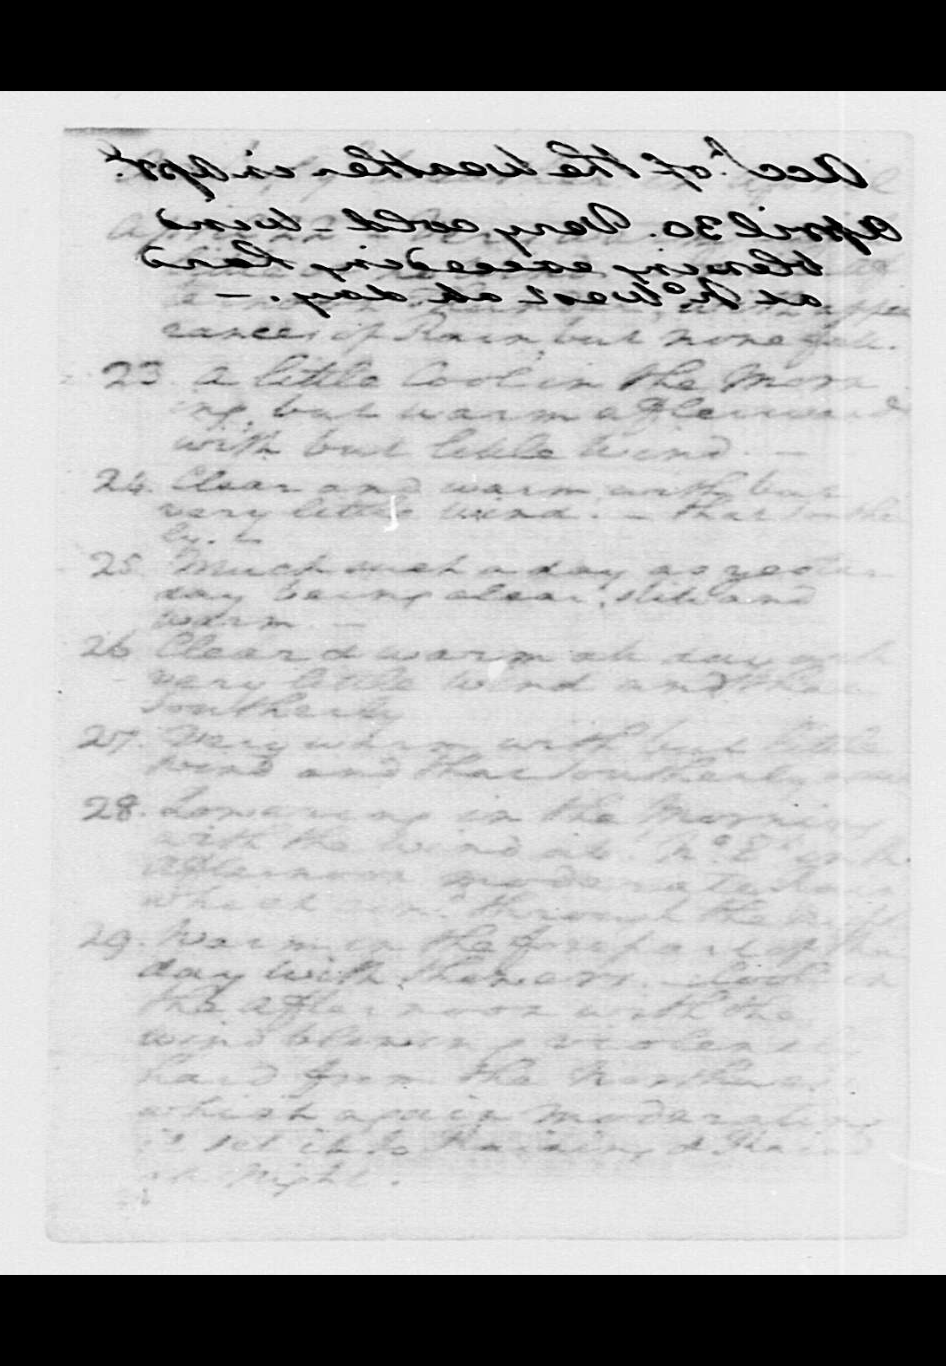 Acct. of the Weather in Apl.
April 30. Very cold - wind
blowing exceeding hard
at No. West all day. —
rances of Rain, but none fell.
23. A little Cool in the Morn
ing, but warm afterwards
with but little Wind. —
24. Clear and warm with but
very little wind. — that Souther
ly. —
25 Much such a day as yester
day being clear, still and
warm. —
26 Clear & warm all day with
very little Wind and that
Southerly
27. Very warm with but little
Wind and that Southerly
28. Lowering in the Morning
with the Wind at No. Et. in the
Afternoon moderate Rain
which through the Night
29. Warm in the forepart of the
day with showers. — Cool in
the afternoon with the
wind blowing violently
hard from the Northwest
which again moderating
it set in to Raining &
at Night.